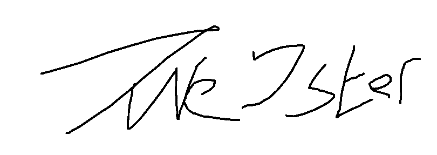 The Ister